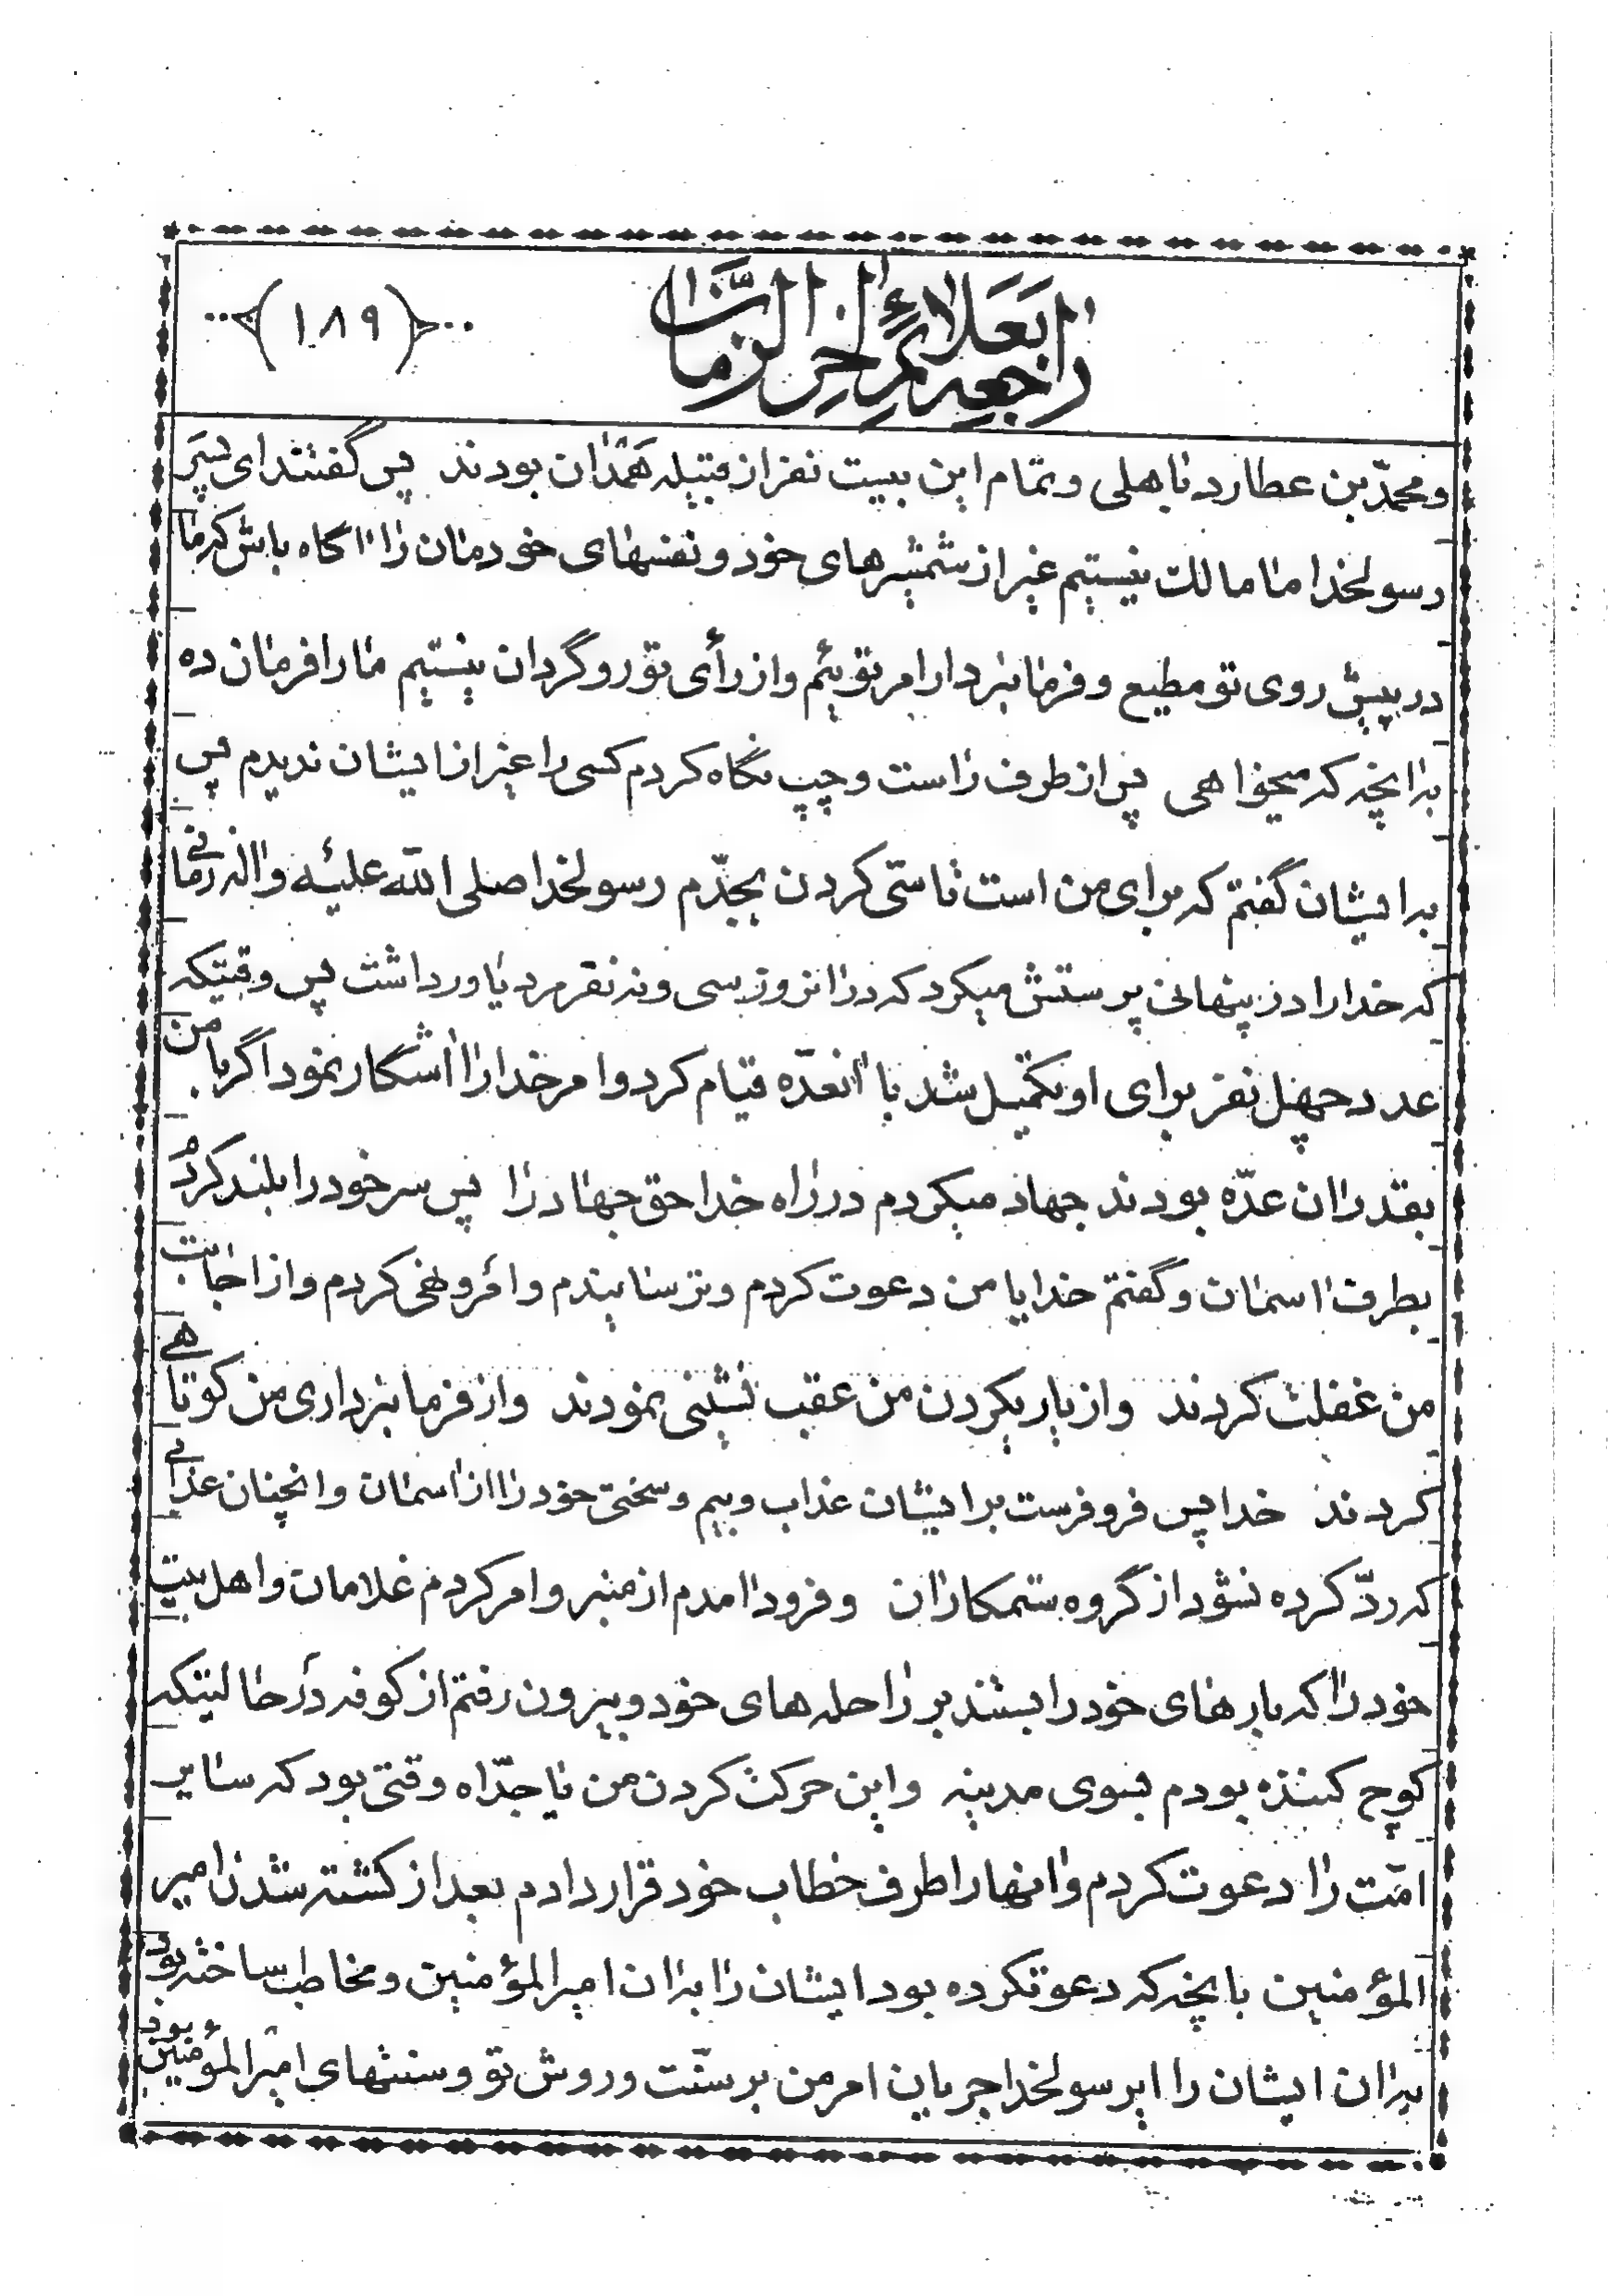 راجعه بعلائم اخر الزمان
(۱۸۹)
و محمّد بن عطارد باهلی و تمام این بیست نفر از قبیله همدان بودند پس گفتند ای پسر
رسولخدا ما مالک نیستیم غیر از شمشیرهای خود و نفسهای خودمان را اگاه باش که ما
در پیش روی تو مطیع و فرمانبردار امر توئیم و از رأی تو روگردان نیستیم ما را فرمان ده
بدانچه که میخواهی پس از طرف راست و چپ نگاه کردم کسی را غیر از ایشان ندیدم پس
بدایشان گفتم که برای من است تاسّی کردن بجدّم رسولخدا صلی الله علیه و اله زمانی
که خدا را در پنهانی پرستش میکرد که در انروز سی و نه نفر مرد یاور داشت پس وقتیکه
عدد چهل نفر برای او تکمیل شد با انعدّه قیام کرد و امر خدا را اشکار نمود اگر با من
بقدر ان عدّه بودند جهاد میکردم در راه خدا حق جهاد را پس سر خود را بلند کردم
بطرف اسمان و گفتم خدایا من دعوت کردم و ترسانیدم و امر و نهی کردم و از اجابت
من غفلت کردند و از یاریکردن من عقب نشینی نمودند و از فرمانبرداری من کوتاهی
کردند خدا پس فرو فرست بدایشان عذاب و بیم و سختی خود را از اسمان و انچنان عذابی
که ردّ کرده نشود از گروه ستمکاران و فرود امدم از منبر و امر کردم غلامان و اهل بیت
خود را که بارهای خود را بستند بر راحله های خود و بیرون رفتم از کوفه در حالیتکه
کوچ کننده بودم بسوی مدینه و این حرکت کردن من یا جدّاه وقتی بود که سایر
امّت را دعوت کردم و انها را طرف خطاب خود قرار دادم بعد از کشته شدن امیر
المؤمنین بانچه که دعوتکرده بود ایشان را بدان امیر المؤمنین و مخاطب ساخته بود
بدان ایشان را ایرسولخدا جریان امر من بر سنّت و روش تو و سنتهای امیر المؤمنین بود